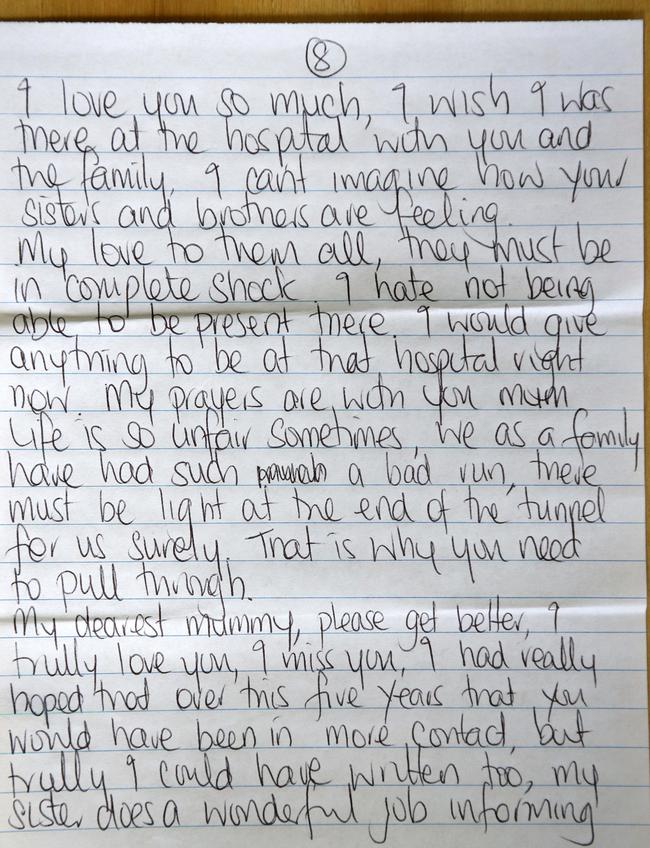 8
I love you so much, I wish I was
there at the hospital with you and
the family, I can't imagine how your
sisters and brothers are feeling.
My love to them all, they must be
in complete shock. I hate not being
able to be present there. I would give
anything to be at that hospital right
now. My prayers are with you mum
Life is so unfair sometimes, we as a family
have had such a bad run, there
must be light at the end of the tunnel
for us surely. That is why you need
to pull through.
My dearest mummy, please get better, I
trully love you, I miss you, I had really
hoped that over this five years that you
would have been in more contact, but
trully I could have written too, my
sister does a wonderful job informing